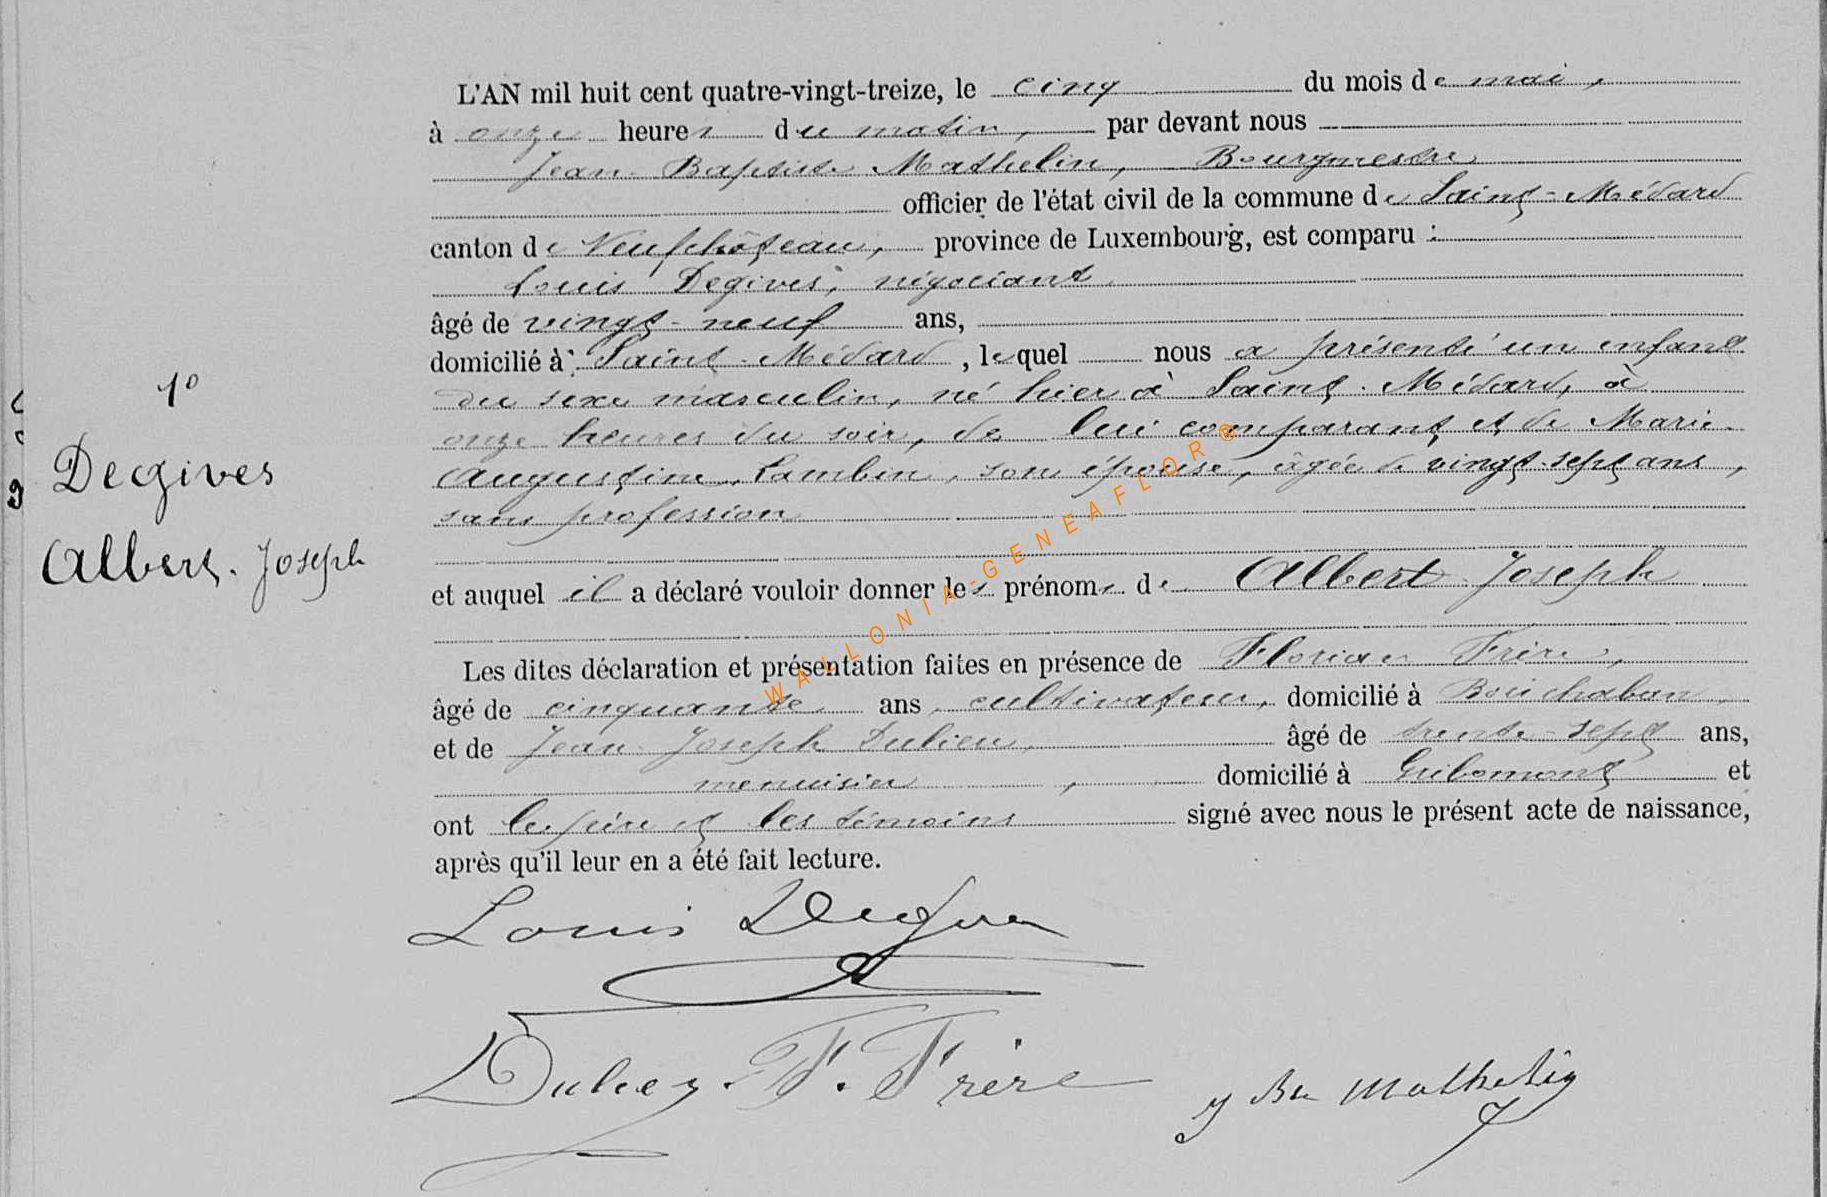 L'AN mil huit cent quatre-vingt-treize, le cinq du mois de mai,
à onze heures du matin, par devant nous
Jean-Baptiste Mathelin, Bourgmestre
officier de l'état civil de la commune de Saint-Médard
canton de Neufchâteau, province de Luxembourg, est comparu :
Louis Degives, négociant
âgé de vingt-neuf ans,
domicilié à Saint-Médard, lequel nous a présenté un enfant
du sexe masculin, né hier à Saint-Médard, à
onze heures du soir, de lui comparant et de Marie-
Augustine Lambin, son épouse, âgée de vingt-sept ans,
sans profession
et auquel il a déclaré vouloir donner les prénoms de Albert Joseph
Les dites déclaration et présentation faites en présence de Florian Frère,
âgé de cinquante ans, cultivateur, domicilié à
et de Jean-Joseph Dulieu, âgé de trente-sept ans,
menuisier, domicilié à Gribomont et
ont le père et les témoins signé avec nous le présent acte de naissance,
après qu'il leur en a été fait lecture.
1°
Degives
Albert-Joseph
Louis Degives
F. Frère
J Bte Mathelin
WALLONIA-GENEAFLOR®